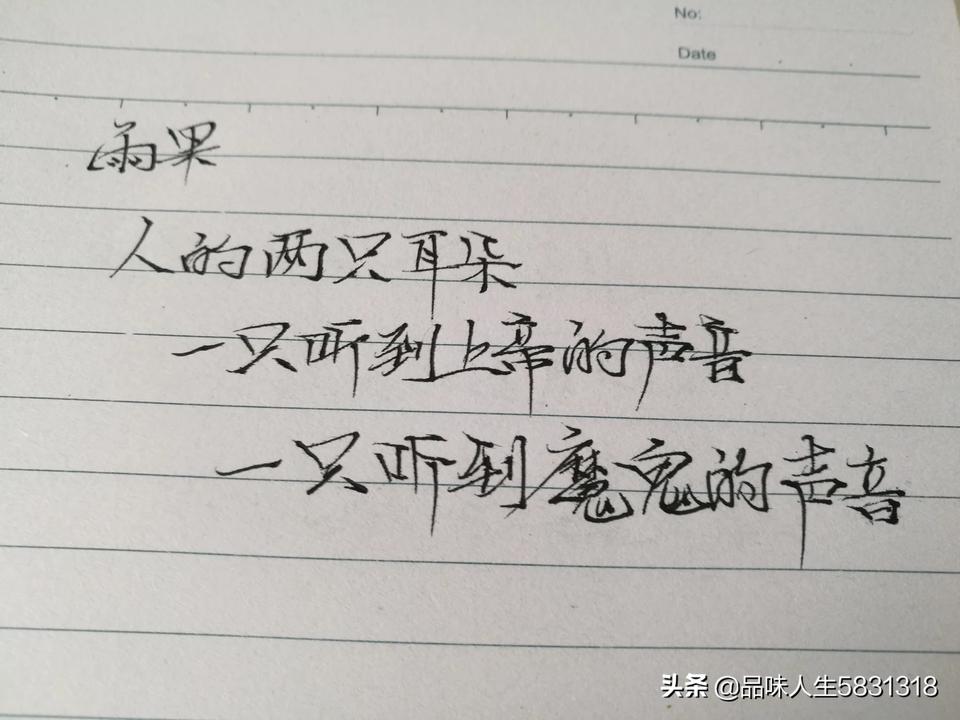 No:
Date
雨果
人的两只耳朵
一只听到上帝的声音
一只听到魔鬼的声音
头条 @品味人生5831318